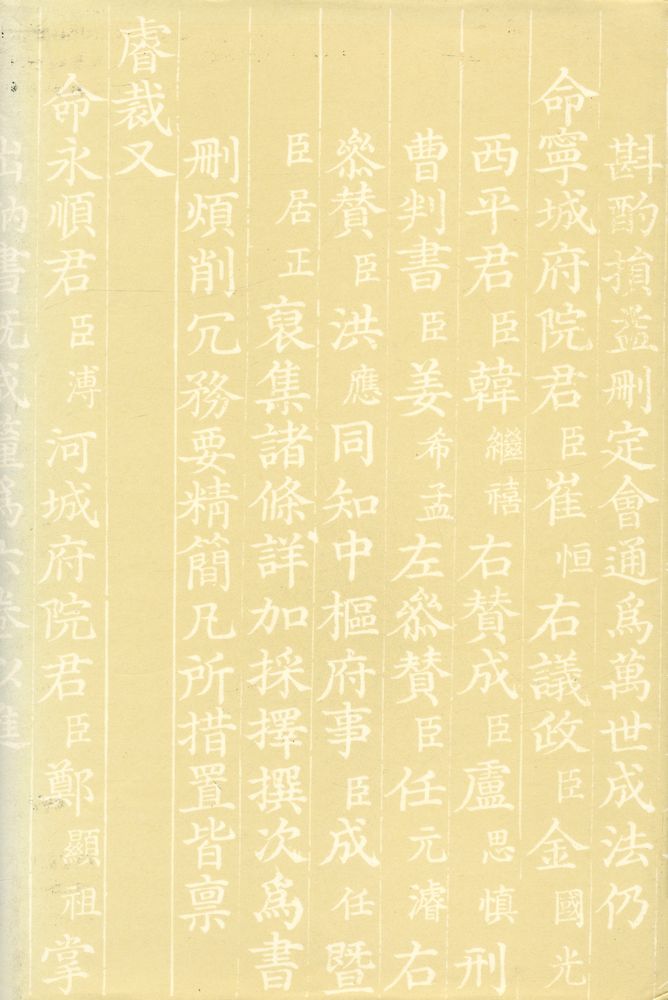 斟酌損益刪定會通爲萬世成法仍
命寧城府院君臣崔恒右議政臣金國光
西平君臣韓繼禧右贊成臣盧思愼刑
曹判書臣姜希孟左參贊臣任元濬右
參贊臣洪應同知中樞府事臣成任暨
臣居正裒集諸條詳加採擇撰次爲書
刪煩削冗務要精簡凡所措置皆禀
睿裁又
命永順君臣溥河城府院君臣鄭顯祖掌
出納書旣成釐爲六卷以進